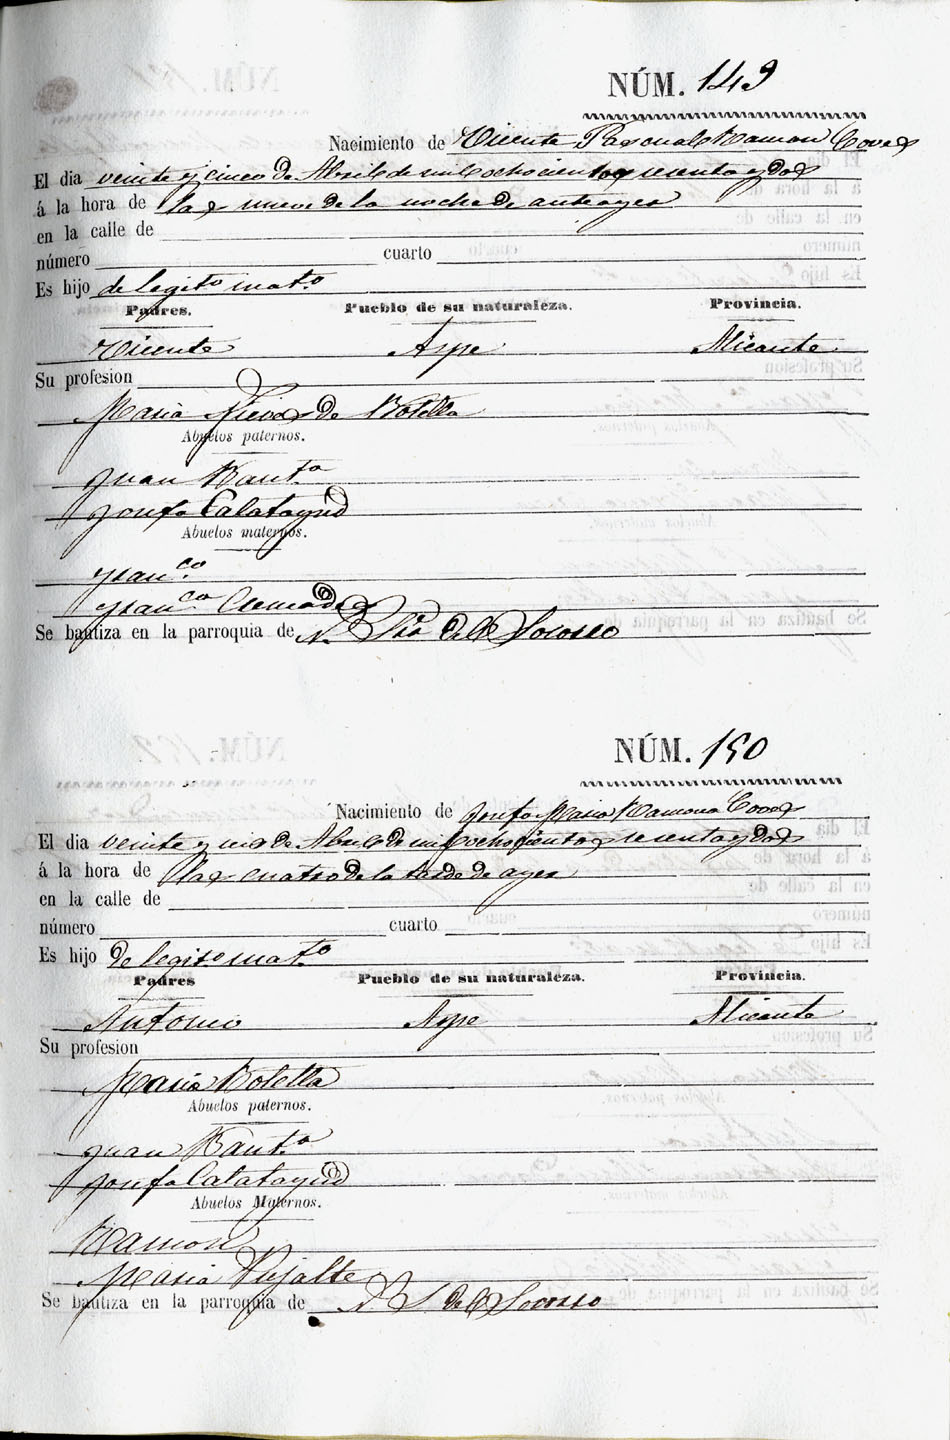 NÚM. 149
Nacimiento de Vicente Pascual Ramon Coves
El dia veinte y cinco de Abril de mil ochocientos sesenta y dos
á la hora de las nueve de la noche de anteayer
en la calle de
número cuarto
Es hijo de legito. mato.
Padres. Pueblo de su naturaleza. Provincia.
Vicente Aspe Alicante
Su profesion
Maria Nieves de Botella
Abuelos paternos.
Juan Bauta.
Josefa Calatayud
Abuelos maternos.
Franco.
Franca. Cremades
Se bautiza en la parroquia de N. Sra. del Socorro
NÚM. 150
Nacimiento de Josefa Maria Ramona Coves
El dia veinte y seis de Abril de mil ochocientos sesenta y dos
á la hora de las cuatro de la tarde de ayer
en la calle de
número cuarto
Es hijo de legito. mato.
Padres Pueblo de su naturaleza. Provincia.
Antonio Aspe Alicante
Su profesion
Maria Botella
Abuelos paternos.
Juan Bauta.
Josefa Calatayud
Abuelos Maternos.
Ramon
Maria Pujalte
Se bautiza en la parroquia de N. S. del Socorro